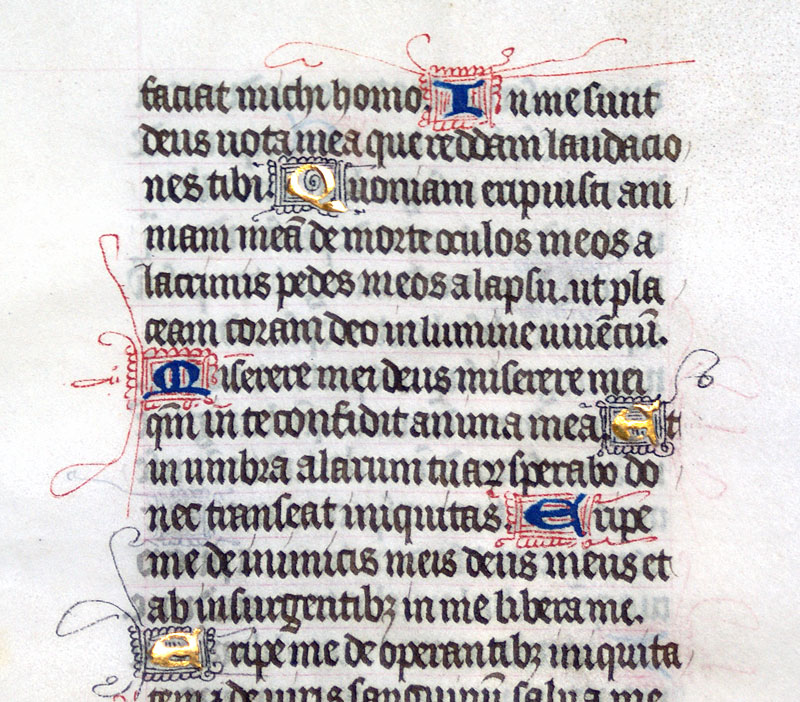 faciat michi homo. In me sunt
deus uota mea que reddam laudacio
nes tibi. Quoniam eripuisti ani
mam meā de morte oculos meos a
lacrimis pedes meos a lapsu. ut pla
ceam coram deo in lumine uiuēciū.
Miserere mei deus miserere mei
qm̄ in te confidit anima meā Et
in umbra alarum tuaꝝ sperabo do
nec transeat iniquitas. Eripe
me de inimicis meis deus meus et
ab insurgentibꝫ in me libera me.
Eripe me de operantibꝫ iniquita
tem ⁊ de uiris sanguinū salua me